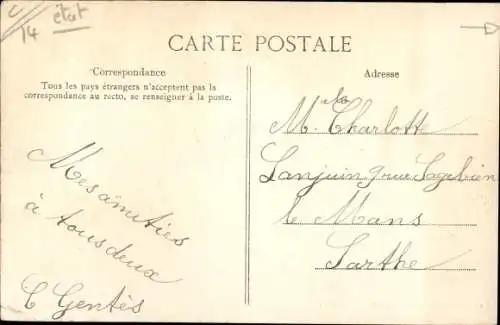 14 état
CARTE POSTALE
Correspondance
Tous les pays étrangers n'acceptent pas la
correspondance au recto, se renseigner à la poste.
Mes amitiés
à tous deux
C Gentès
Adresse
Mme Charlotte
Lanjuin 9 rue Sagebien
le Mans
Sarthe